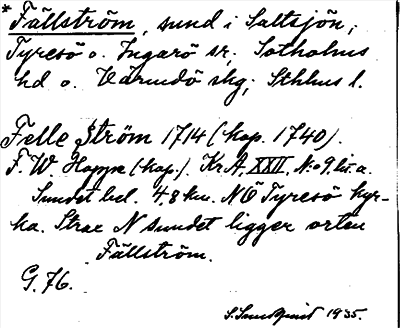 *Fällström, sund i Saltsjön,
Tyresö o. Ingarö sr; Sotholms
hd o. Värmdö skg; Sthlms l.
Felle Ström 1714 (kop. 1740).
F. W. Hoppe (kop.) Kr.A. XXII. N:o 9. lit. a.
Sundet bel. 4.8 km. NÖ Tyresö kyr-
ka. Strax N sundet ligger orten
Fällström.
G. 76.
S. Sundquist 1935.